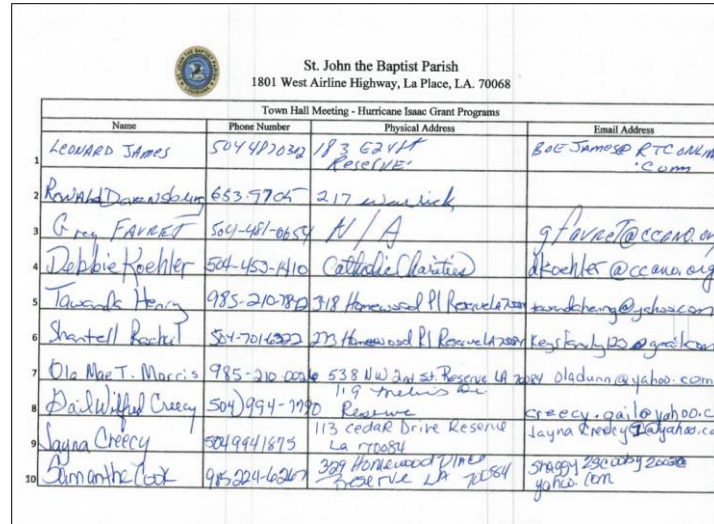 St. John the Baptist Parish
1801 West Airline Highway, La Place, LA. 70068
Town Hall Meeting - Hurricane Isaac Grant Programs
Name Phone Number Physical Address Email Address
1 LEONARD JAMES 504 4870342 183 E2Vtt Reserve. BOEJAMES@RTCONLINE.Com
2 653-9705 217 Warwick
3 Greg FAVRET 504-481-0654 N/A gfavret@ccano.org
4 Debbie Koehler 504-453-1410 Catholic Charities dkoehler@ccano.org
5 Tawanda Henry 985-210-7812 318 Homewood Pl Reserve LA 70084 tawandahenry@yahoo.com
6 Shantell 273 Homewood Pl Reserve LA 70084
7 Ola Mae T. Morris 985-210-0026 538 NW 2nd St. Reserve LA 70084 oladunn@yahoo.com
8 Gail Wilfred Creecy 504)994-7790 119 Dr Reserve creecy.gail@yahoo.co
9 Jayna Creecy 5049941875 113 cedar Drive Reserve La 70084
10 Samantha Cook 985-224-6267 329 Homewood Place Reserve LA 70084 yahoo.com